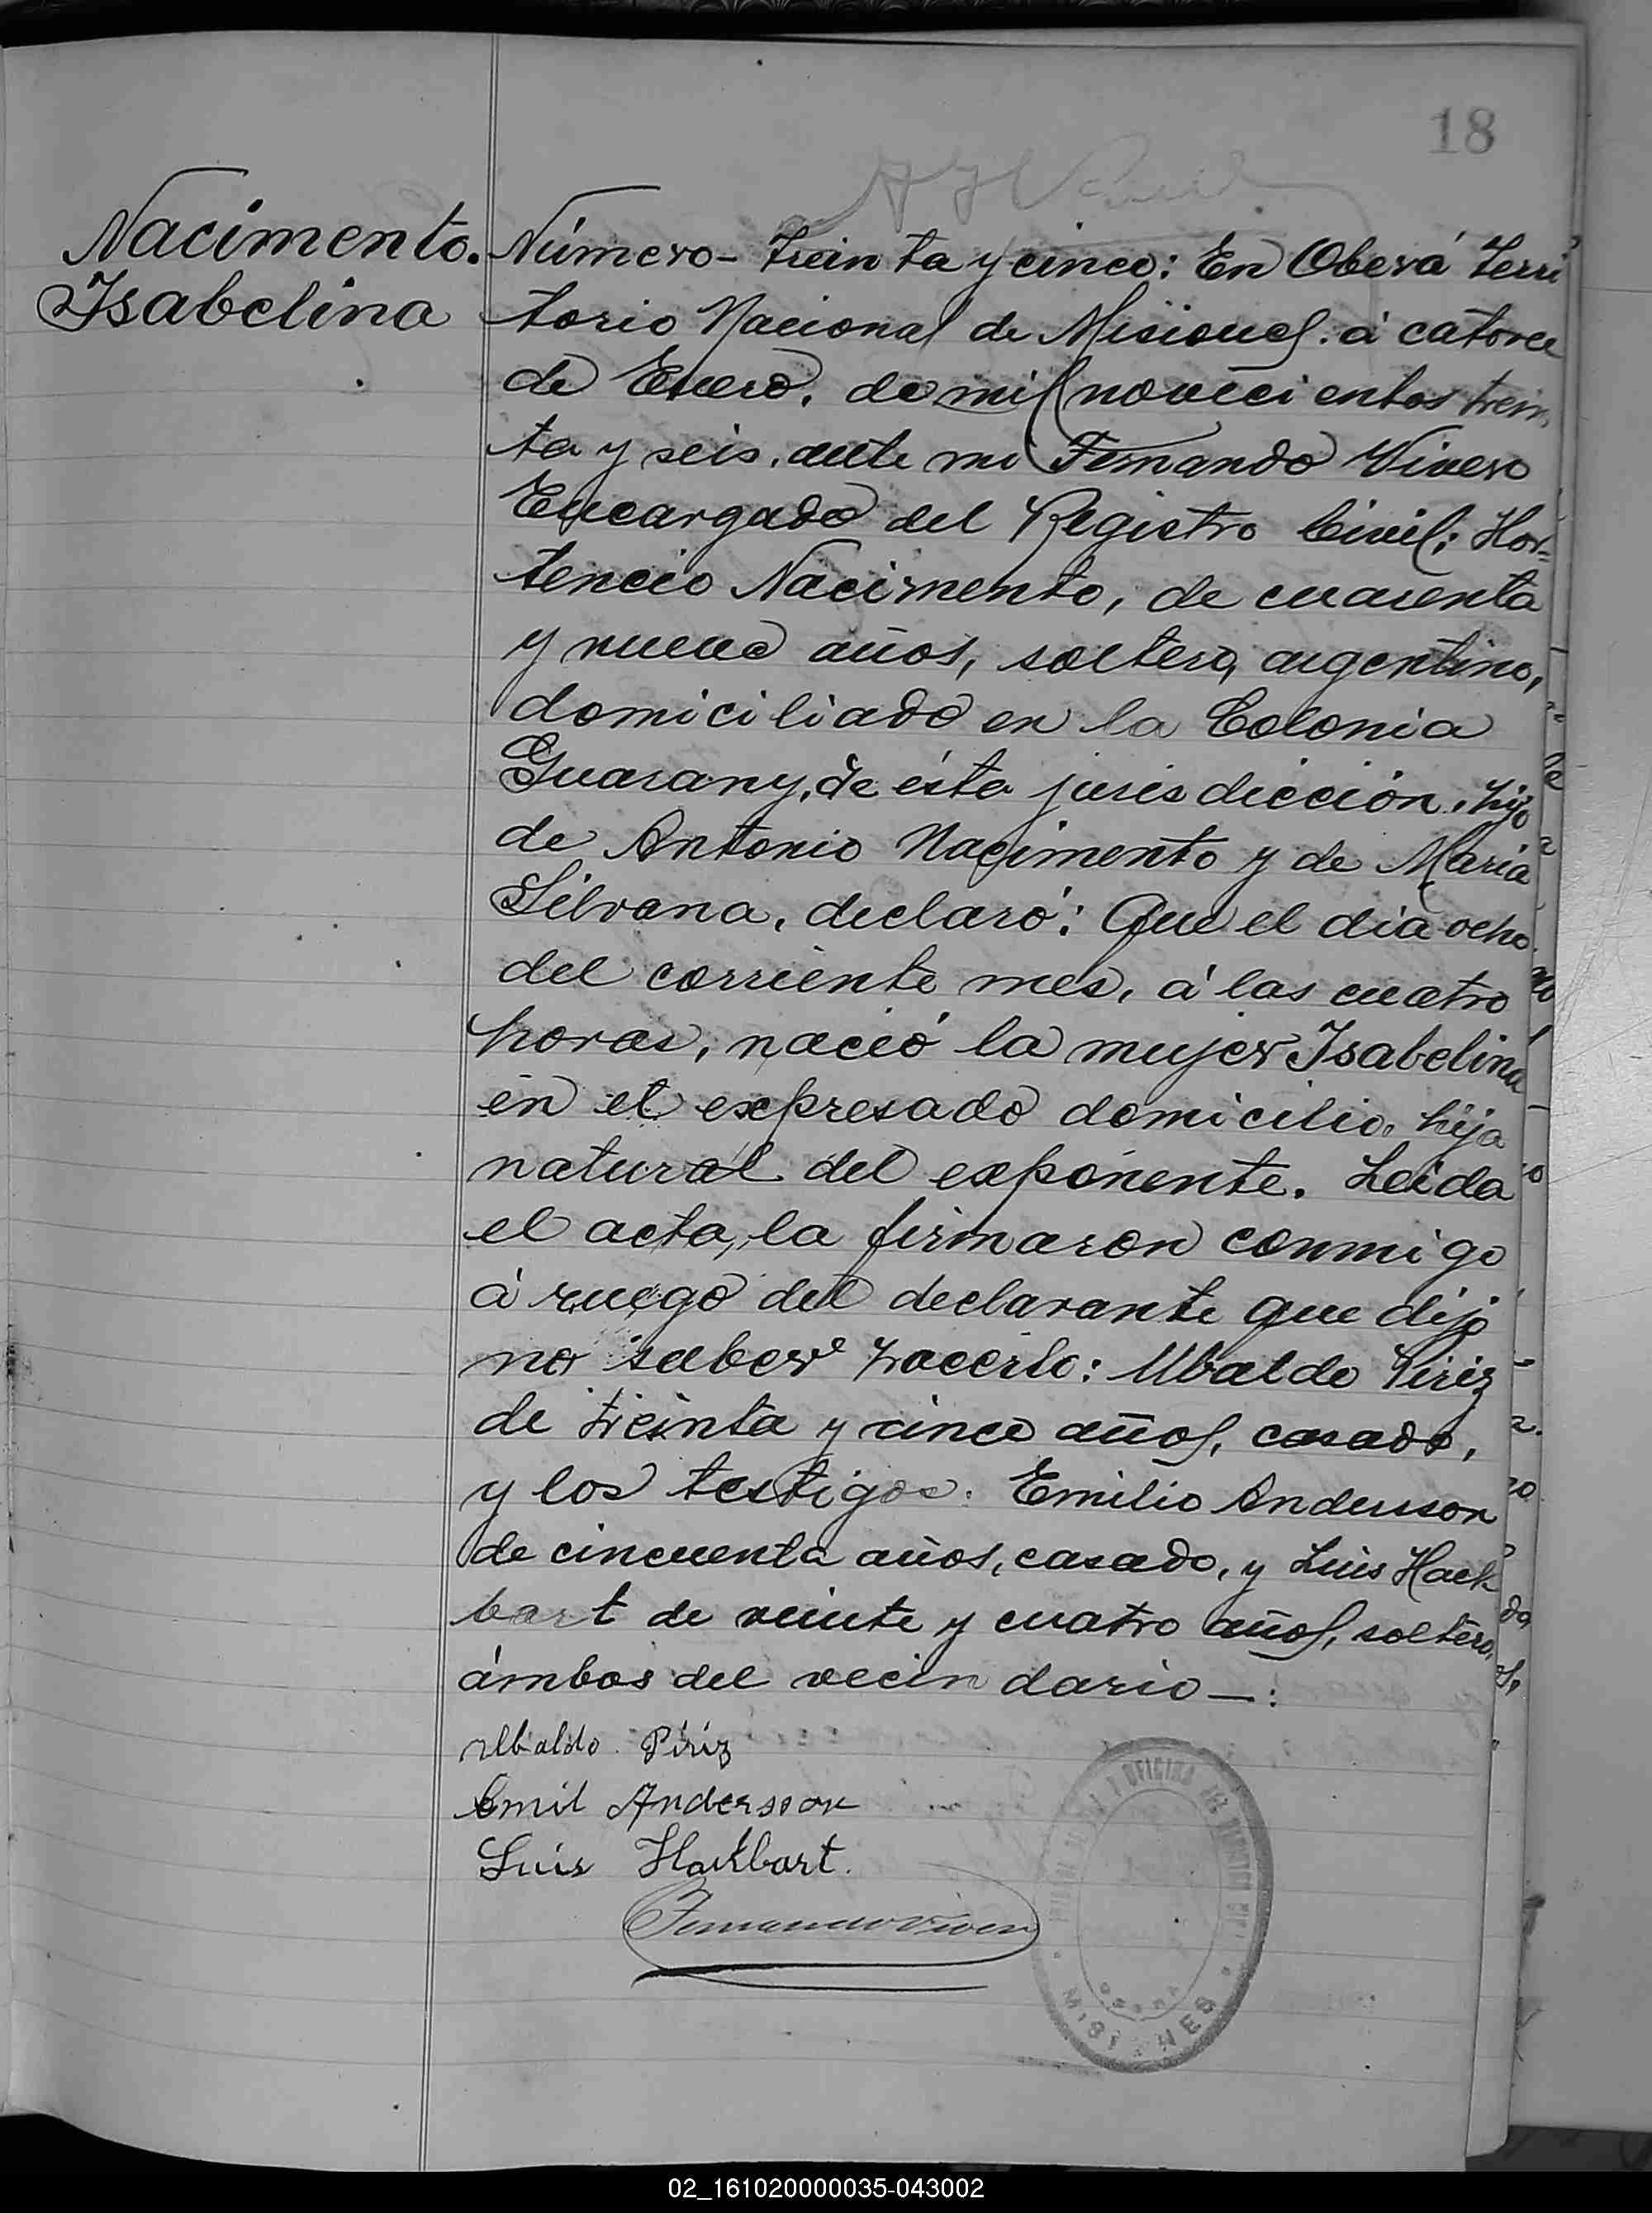 18
Nacimento.
Isabelina
Número - Treinta y cinco: En Oberá Terri
torio Nacional de Misiones. á catorce
de Enero, de mil novecientos trein
ta y seis, ante mi Fernando Vivero
Encargado del Registro Civil; Hor-
tencio Nacimento, de cuarenta
y nueve años, soltero, argentino,
domiciliado en la Colonia
Guarany, de ésta jurisdicción, hijo
de Antonio Nacimento y de Maria
Silvana, declaró: Que el dia ocho
del corriente mes, á las cuatro
horas, nació la mujer Isabelina
en el expresado domicilio, hija
natural del exponente. Leida
el acta, la firmaron conmigo
á ruego del declarante que dijo
no saber hacerlo: Ubaldo Piriz
de treinta y cinco años, casado,
y los testigos: Emilio Andersson
de cincuenta años, casado, y Luis Hack
bart de veinte y cuatro años, soltero,
ámbos del vecindario - :
Ubaldo Píriz
Emil Andersson
Luis Hackbart.
Fernando Vivero
OFICINA DEL REGISTRO CIVIL
MISIONES
02_161020000035-043002